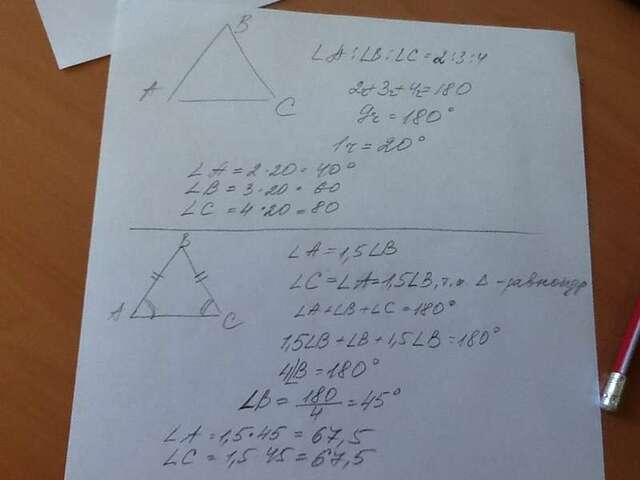 B
A
C
∠A:∠B:∠C=2:3:4
2ч+3ч+4ч=180
9ч=180°
1ч=20°
∠A=2·20=40°
∠B=3·20=60
∠C=4·20=80
B
A
C
∠A=1,5∠B
∠C=∠A=1,5∠B, т.к Δ-равнобдр
∠A+∠B+∠C=180°
1,5∠B+∠B+1,5∠B=180°
4∠B=180°
∠B=180/4=45°
∠A=1,5·45=67,5
∠C=1,5·45=67,5